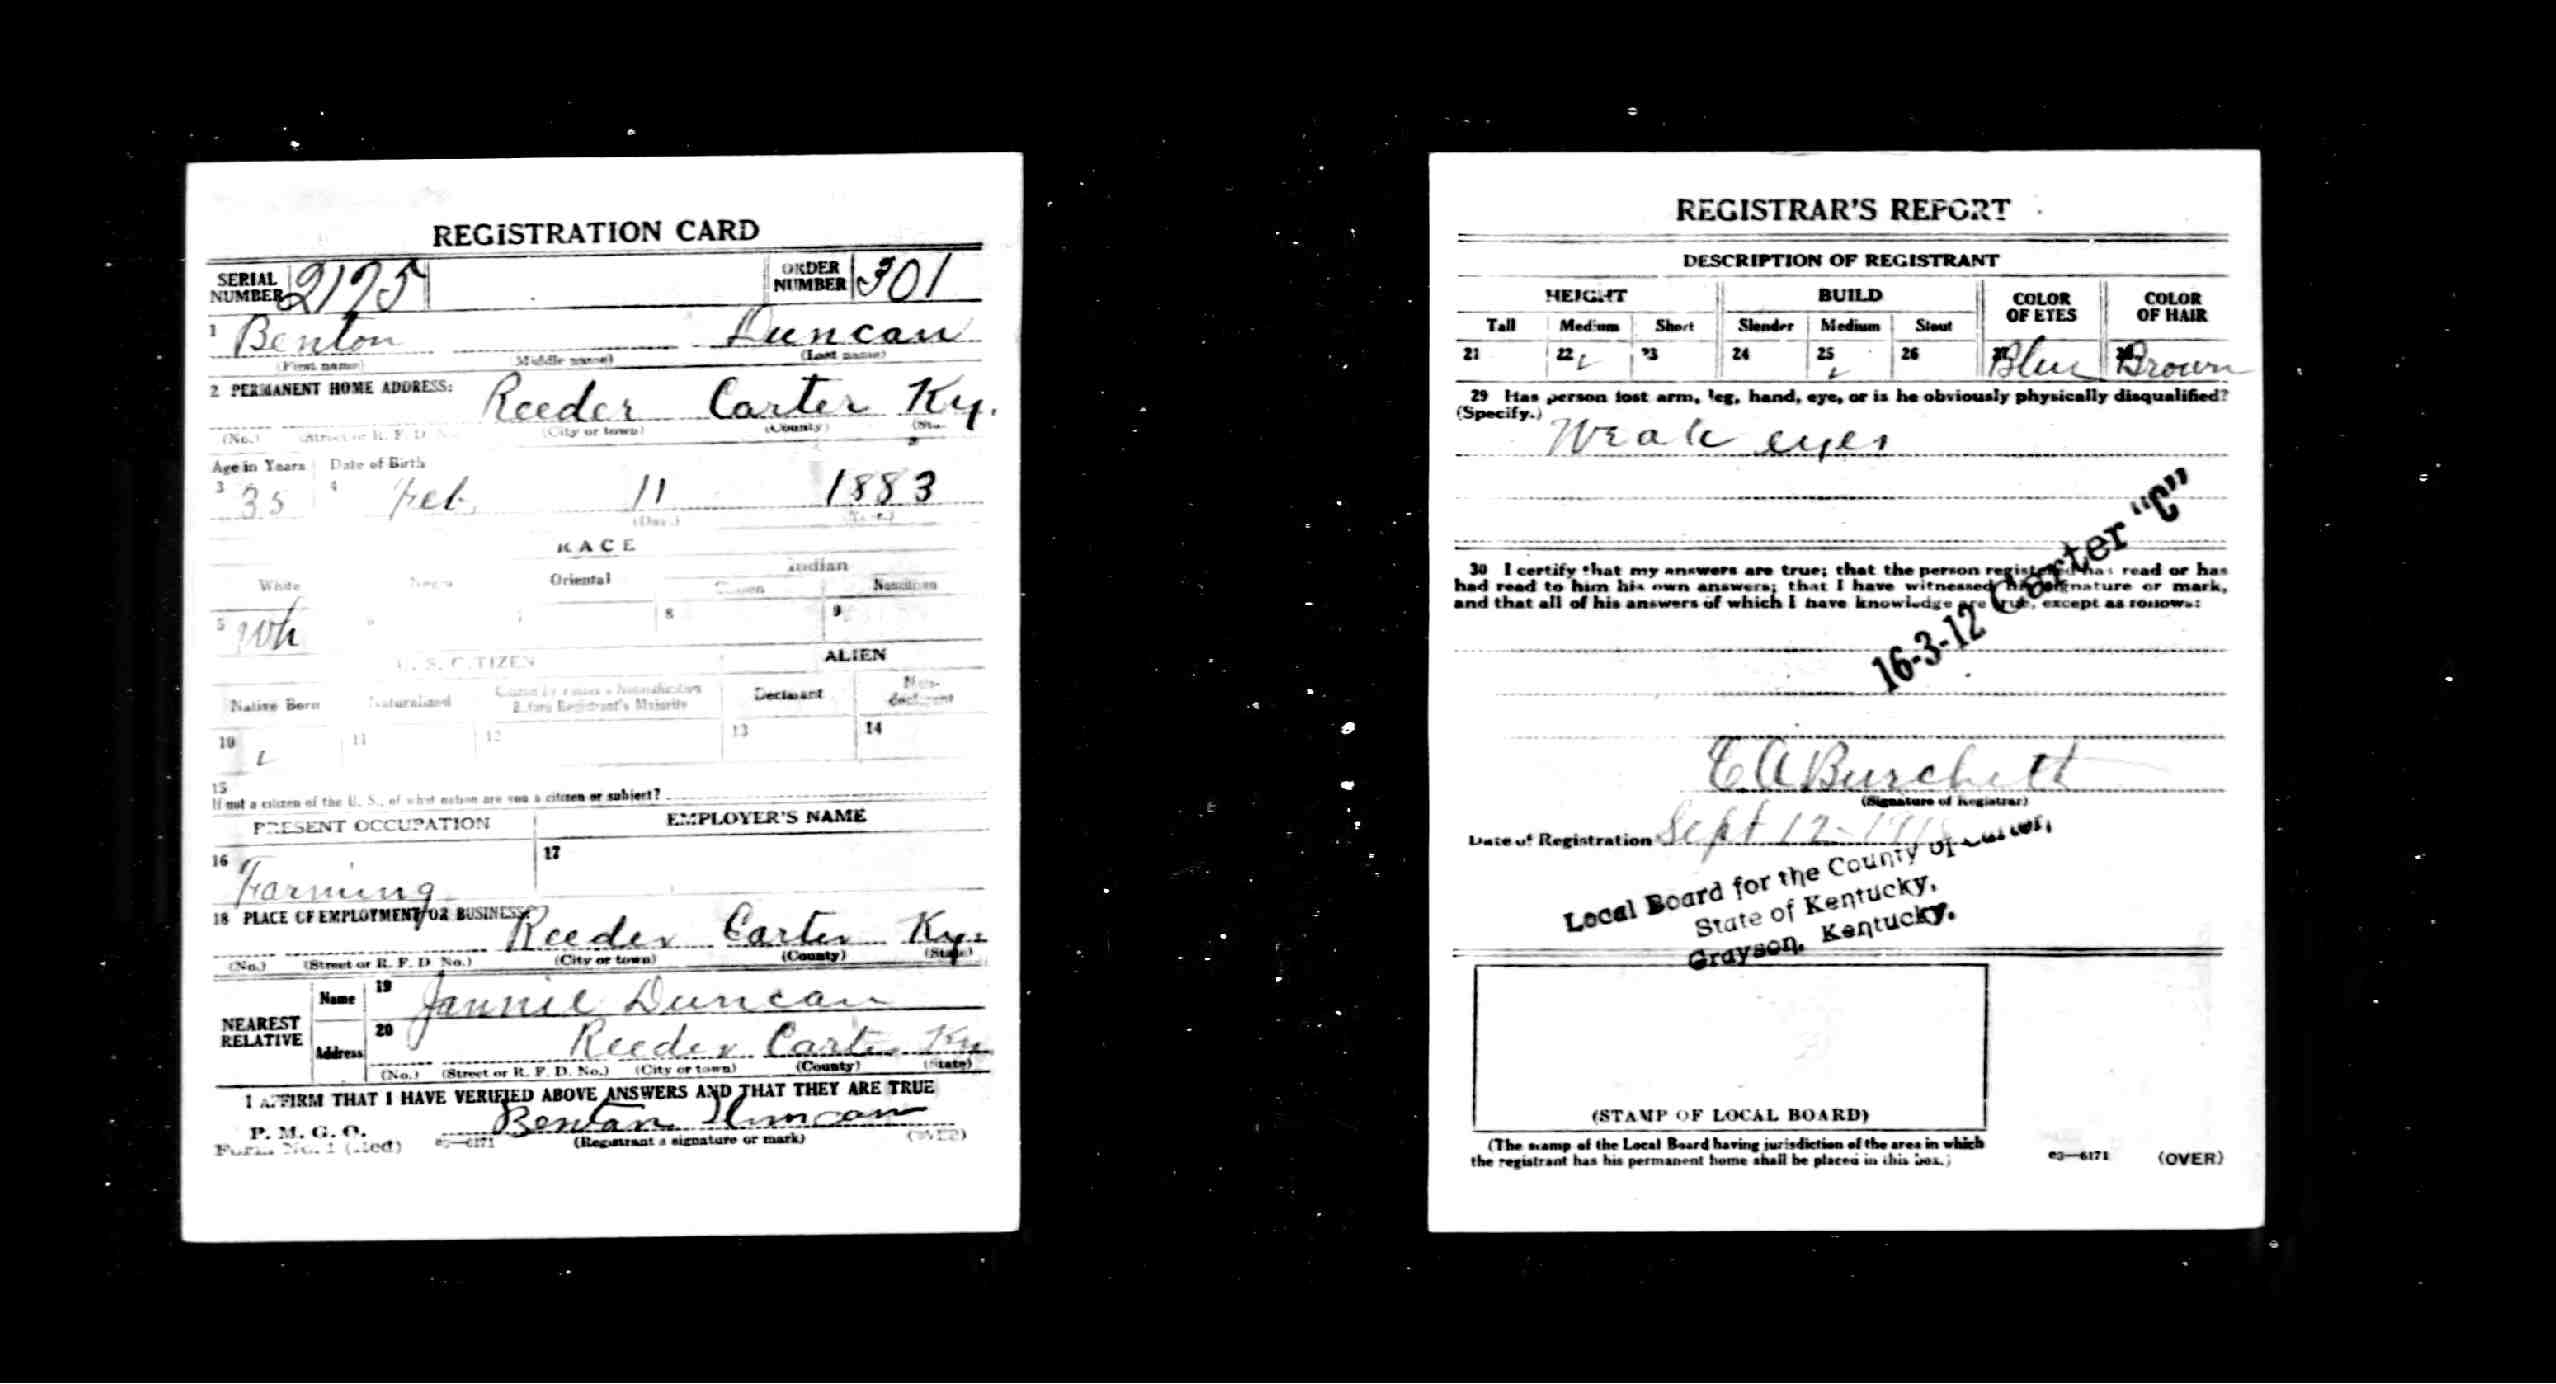 REGISTRATION CARD
SERIAL NUMBER 2175 ORDER NUMBER 301
1 Benton Duncan
(First name) (Middle name) (Last name)
2 PERMANENT HOME ADDRESS: Reeder Carter Ky.
(No.) (Street or R. F. D. No.) (City or town) (County)
Age in Years Date of Birth
3 35 4 Feb. 11 1883
(Day.) (Year.)
RACE
White Negro Oriental Indian
Citizen Noncitizen
5 Wh 8 9
U. S. CITIZEN ALIEN
Native Born Naturalized Citizen by Father's Naturalization Before Registrant's Majority Declarant Non-declarant
10 ✓ 11 12 13 14
15
If not a citizen of the U. S., of what nation are you a citizen or subject?
PRESENT OCCUPATION EMPLOYER'S NAME
16 Farming 17
18 PLACE OF EMPLOYMENT OR BUSINESS: Reeder Carter Ky.
(No.) (Street or R. F. D. No.) (City or town) (County) (State)
NEAREST RELATIVE Name 19 Jannie Duncan
Address 20 Reeder Carter Ky
(No.) (Street or R. F. D. No.) (City or town) (County) (State)
I AFFIRM THAT I HAVE VERIFIED ABOVE ANSWERS AND THAT THEY ARE TRUE
P. M. G. O. Benton Duncan
Form No. 1 (Red) 03—6171 (Registrant's signature or mark) (OVER)
REGISTRAR'S REPORT
DESCRIPTION OF REGISTRANT
HEIGHT BUILD COLOR OF EYES COLOR OF HAIR
Tall Medium Short Slender Medium Stout
21 22 ✓ 23 24 25 ✓ 26 27 Blue 28 Brown
29 Has person lost arm, leg, hand, eye, or is he obviously physically disqualified?
(Specify.) Weak eyes
30 I certify that my answers are true; that the person registered has read or has
had read to him his own answers; that I have witnessed his signature or mark,
and that all of his answers of which I have knowledge are true, except as follows:
16-3-12 Carter "C"
E A Burchett
(Signature of Registrar)
Date of Registration Sept 12-1918
Local Board for the County of Carter,
State of Kentucky,
Grayson, Kentucky.
(STAMP OF LOCAL BOARD)
(The stamp of the Local Board having jurisdiction of the area in which
the registrant has his permanent home shall be placed in this box.)
03—6171 (OVER)